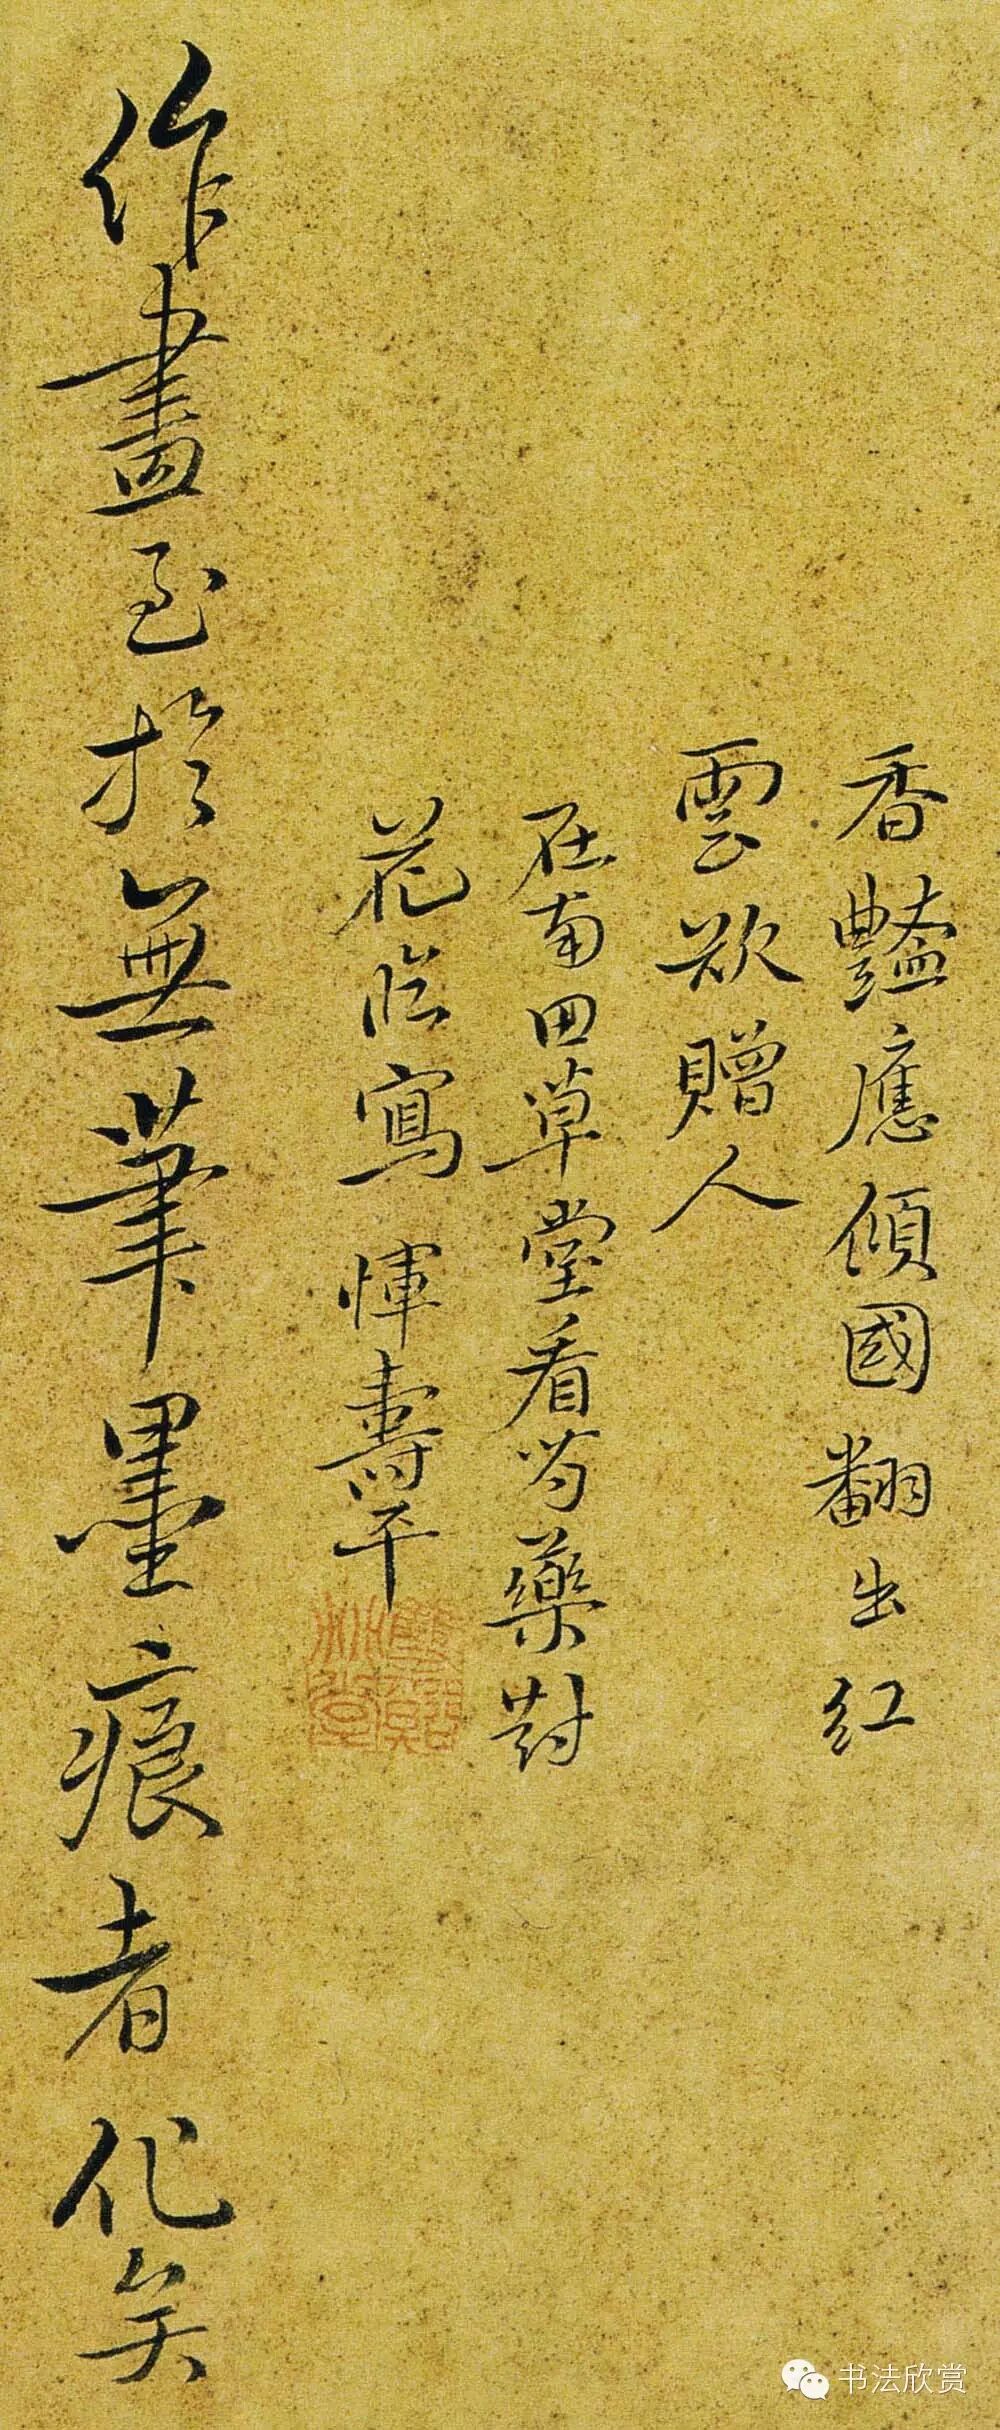 香豔應傾國翻出紅
雲欲贈人
在南田草堂看芍藥對
花臨寫 惲壽平
作畫至於無筆墨痕者化矣
书法欣赏